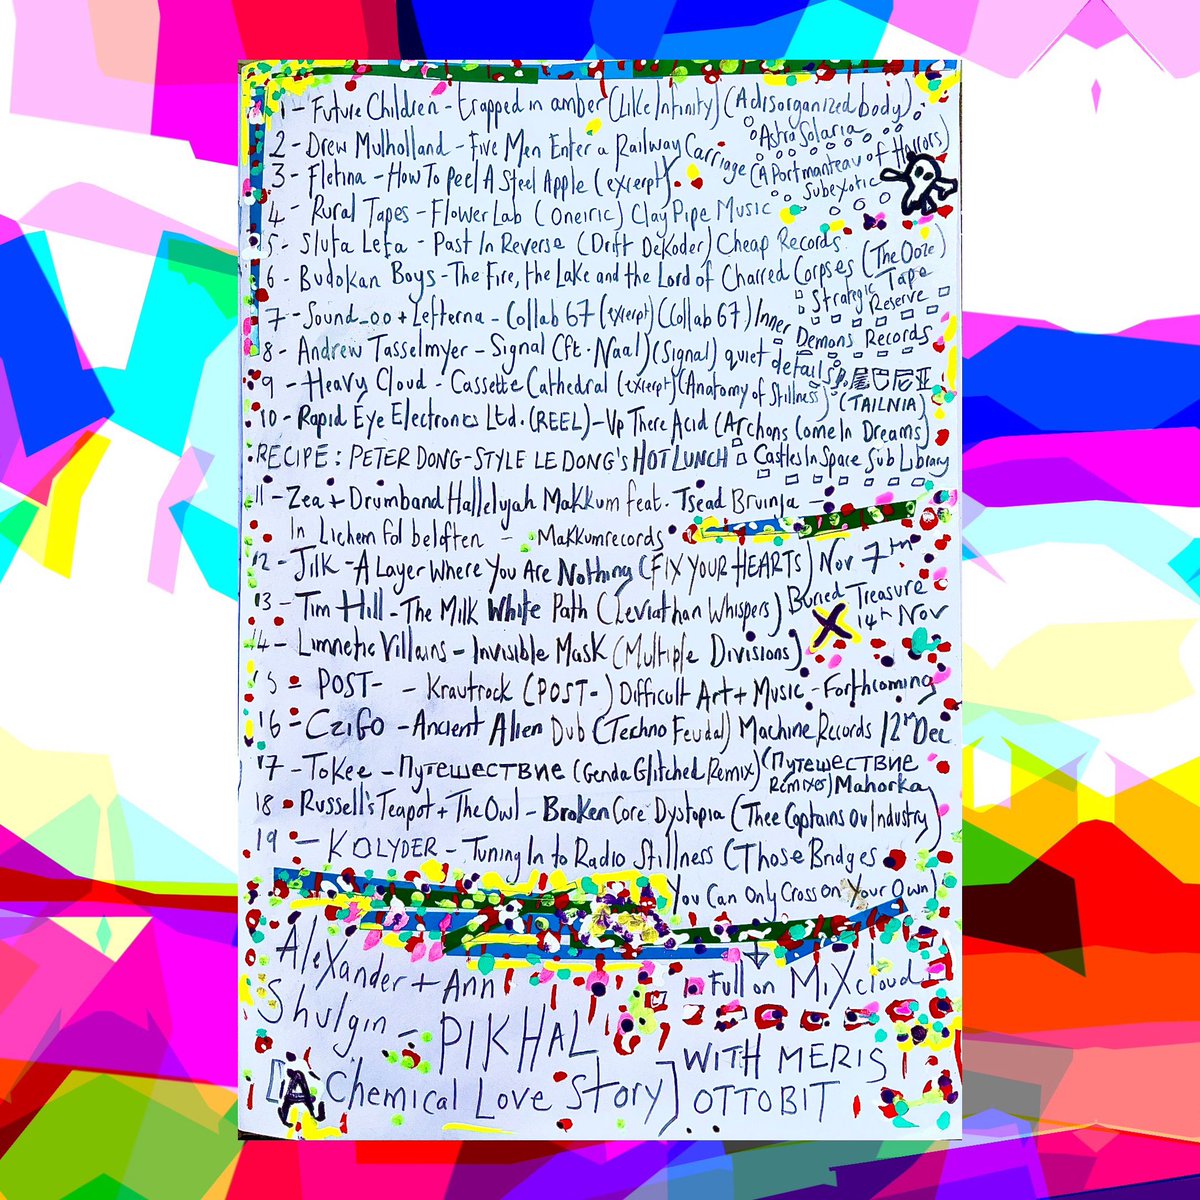 1 - Future Children - trapped in amber (Like Infinity) (A disorganized body)
Astra Solaria
2 - Drew Mulholland - Five Men Enter a Railway Carriage (A Portmanteau of Horrors)
Subexotic
3 - Fletina - How To Peel A Steel Apple (exerpt)
4 - Rural Tapes - Flower Lab (Oneiric) Clay Pipe Music
5 - Slufa Lefa - Past In Reverse (Drift DeKoder) Cheap Records
6 - Budokan Boys - The Fire, the Lake and the Lord of Charred Corpses (The Ooze)
Strategic Tape
Reserve
7 - Sound_00 + Lefterna - Collab 67 (exerpt) (Collab 67) Inner Demons Records
8 - Andrew Tasselmyer - Signal (ft. Naal) (Signal) quiet details
9 - Heavy Cloud - Cassette Cathedral (exerpt) (Anatomy of Stillness)
(TAILNIA)
10 - Rapid Eye Electronics Ltd. (REEL) - Up There Acid (Archons Come In Dreams)
Castles In Space Sub Library
RECIPE: PETER DONG-STYLE LE DONG'S HOT LUNCH
11 - Zea + Drumband Hallelujah Makkum feat. Tsead Bruinja -
In Lichem fol beloften - Makkumrecords
12 - Jilk - A Layer Where You Are Nothing (FIX YOUR HEARTS) Nov 7th
13 - Tim Hill - The Milk White Path (Leviathan Whispers) Buried Treasure
14th Nov
14 - Limnetic Villains - Invisible Mask (Multiple Divisions)
15 - POST- - Krautrock (POST-) Difficult Art + Music - Forthcoming
16 - Czigo - Ancient Alien Dub (Techno Feudal) Machine Records 12th Dec
17 - Tokee - Путешествие (Genda Glitched Remix) (Путешествие
Remixes) Mahorka
18 - Russell's Teapot + The Owl - Broken Core Dystopia (Thee Captains ov Industry)
19 - KOLYDER - Tuning In to Radio Stillness (Those Bridges
You Can Only Cross on Your Own)
Alexander + Ann
Shulgin - PIKHAL
[A Chemical Love Story]
Full on MiXcloud
WITH MERIS
OTTOBIT